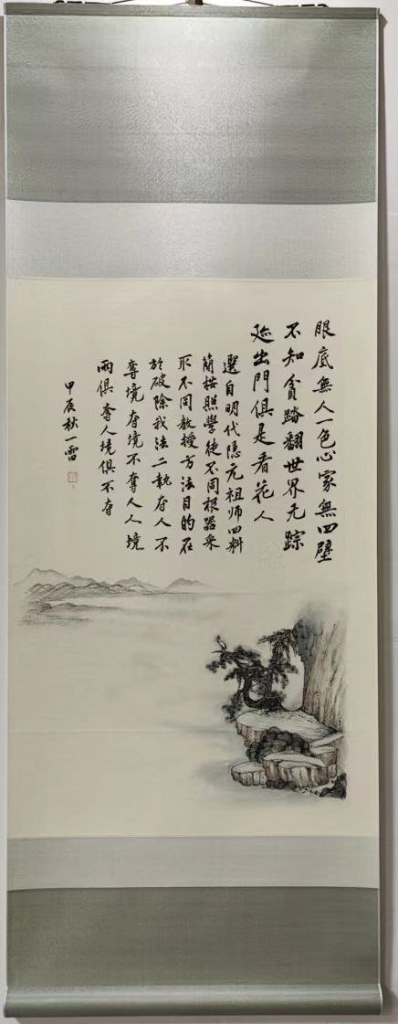 眼底無人一色心家無四壁
不知貪踏翻世界无踪
跡出門俱是看花人
選自明代隐元祖师四料
簡按照學徒不同根器采
取不同教授方法目的在
於破除我法二執奪人不
奪境奪境不奪人人境
兩俱奪人境俱不奪
甲辰秋一雷